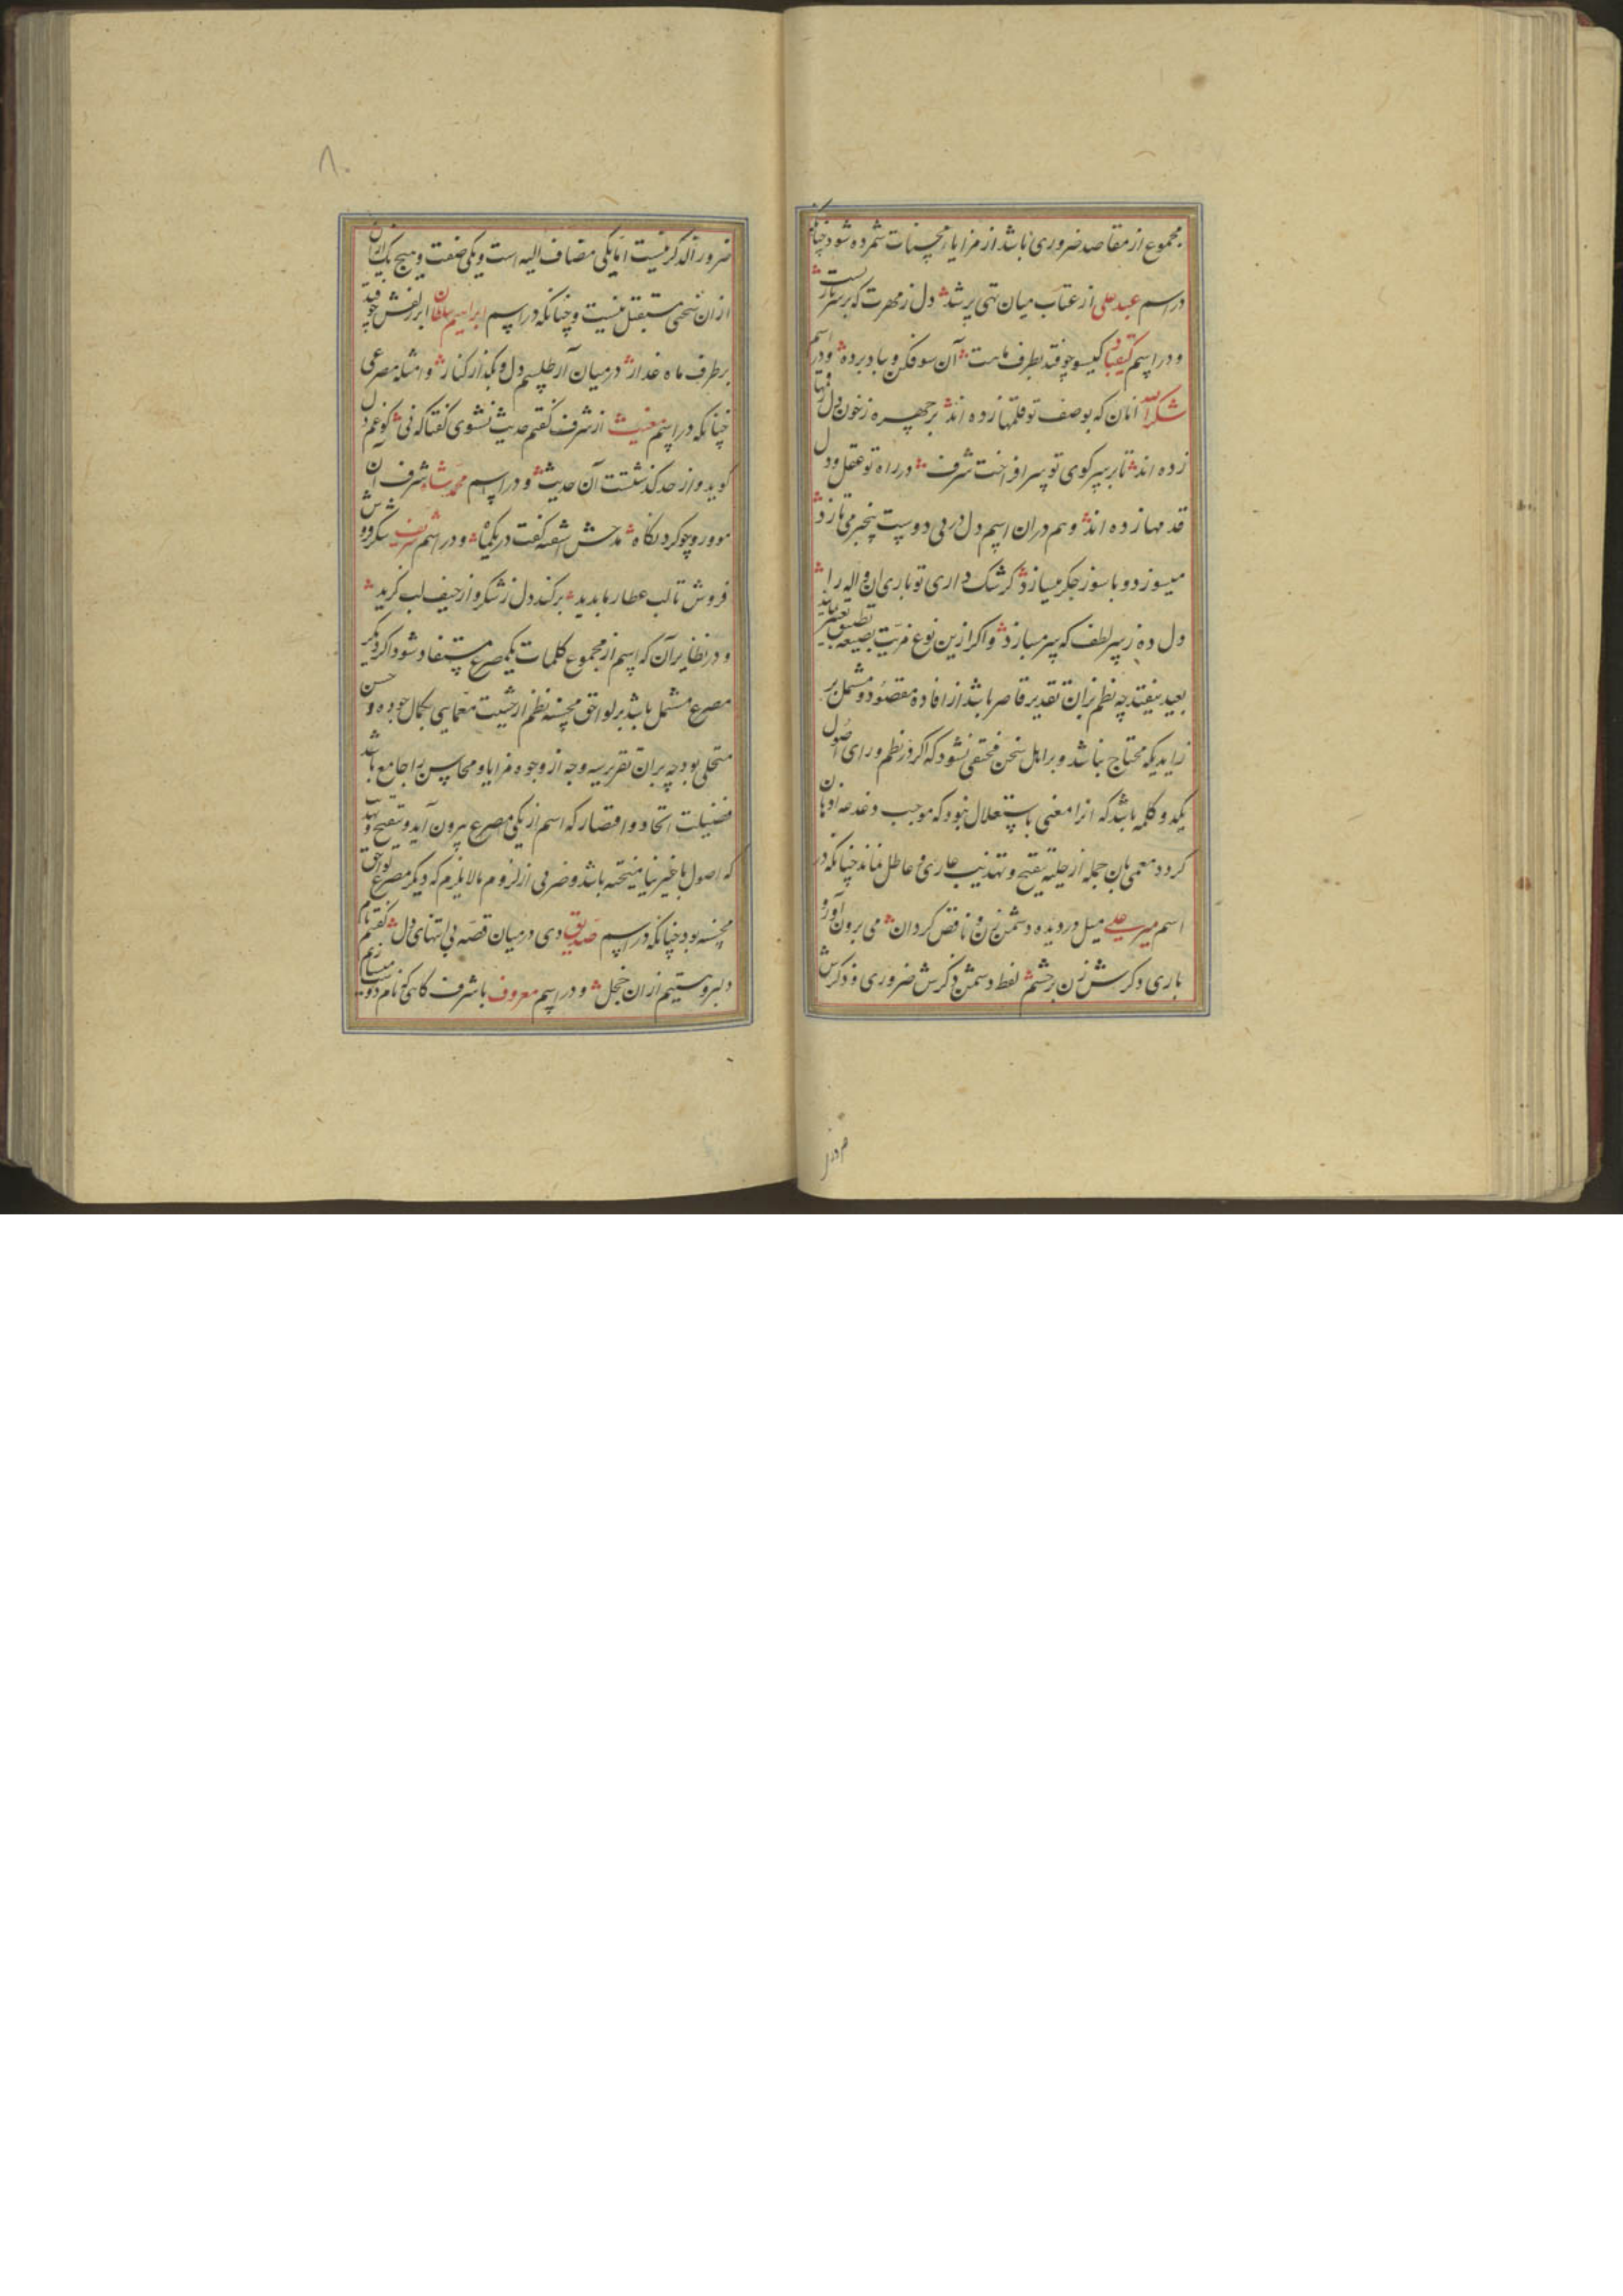 مجموع از مقاصد ضروری باشد از مزایا و محسنات شمرده شود چنانکه
در اسم عبد علی از عتاب میان تهی پر شد دل ز مهرت که بر سر تارست
و در اسم کیقباد کیسو چو فتد بطرف ماهت آن سو فکن و باد برده و در اسم
شکر الله انان که بوصف تو قلمها زده اند بر چهره ز خون دل رقمها
زده اند تا بر سر کوی تو سر افراخت شرف در راه تو عقل و دل
قدمها زده اند و هم در ان اسم دل در پی دوست پنجبر می تازد
میسوزد و با سوز جکر میسازد کر شک داری تو باری ان واله را
دل ده ز سر لطف که سر میبازد و اکر ازین نوع مزیت بصیغه تطبیق تعبیر نمایند
بعید نیفتد چه نظم بران تقدیر قاصر باشد از افاده مقصود و مشتمل بر
زایدی که محتاج نباشد و بر اهل سخن مختفی نشود که اکر در نظم ورای اصول
یکدو کلمه باشد که انرا معنی باستقلال نبود که موجب دغدغه اذهان
کردد معمی بان جمله از حلیه تنقیح و تهذیب عاری و عاطل نماند چنانکه در
اسم میر علی میل در دیده دشمن زن و ناقص کردان می برون آور و
باری دکرش زن بر چشم لفظ دشمن و دکرش ضروری و ذکرش
۸۰
ضرور الذکر نیست اما یکی مضاف الیه است و یکی صفت و هیچ یک از ان
از ان سخنی مستقل نیست و چنانکه در اسم ابراهیم سلطان ابر زلفش چو فتد
بر طرف ماه عذار در میان آر طلسم دل و بکذار کنار و امثله مصرعی
چنانکه در اسم مغیث از شرف کفتم حدیث نشوی کفتا که نی کو غم دل
کوید و از حد کذشتست آن حدیث و در اسم محمد شاه شرف آن
مو و رو چو کرد نکاه مدحش اشفته کفت در یکماه و در اسم شرف شکر
فروش تا لب عطار ما بدید بر کند دل ز شکر و از حیف لب کزید
و در نظایر آن که اسم از مجموع کلمات یکمصرع مستفاد شود اکر دیکر
مصرع مشتمل باشد بر لواحق محسنه نظم از حیثیت معمایی بکمال جوده و حسن
متحلی بود چه بران تقریر سه وجه از وجوه مزایا و محاسن را جامع باشد
فضیلت اتحاد و اقتصار که اسم از یکی مصرع بیرون آید و تنقیح و تهذیب
که اصول با غیر نیامیخته باشد و ضربی از لزوم ما لا یلزم که دیکر مصرع لواحق
محسنه بود چنانکه در اسم صدیق دی در میان قصه بی انتهای دل کفتیم نام
دلبر و هستیم از ان خجل و در اسم معروف با شرف کاهی که نام دوست